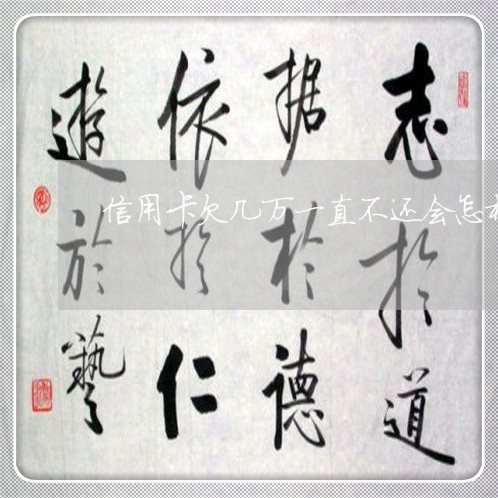 志於道
据於德
依於仁
遊於藝
信用卡欠几万一直不还会怎